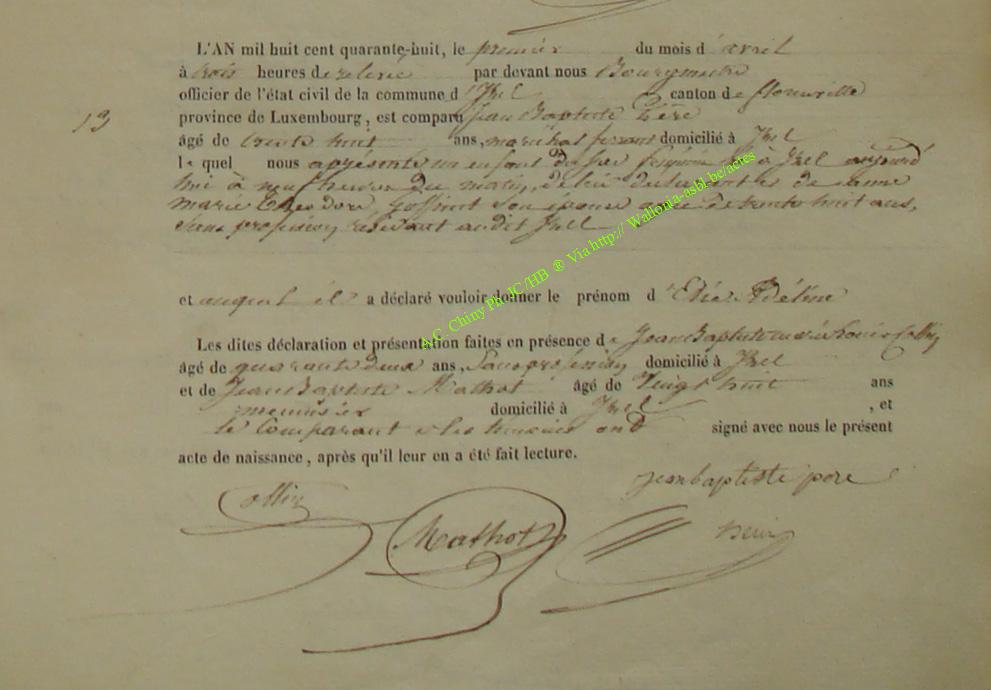 L'AN mil huit cent quarante-huit, le premier du mois d'avril
à trois heures de relevé par devant nous Bourgmestre
officier de l'état civil de la commune d'Izel canton de florenville
province de Luxembourg, est comparu Jean Baptiste
13
âgé de trente huit ans, maréchal ferrant domicilié à Izel
lequel nous a présenté un enfant du sexe à Izel aujourd
hui à neuf heures du matin, de lui déclarant et de anne
marie son épouse agée de trente huit ans,
sans profession résidant audit Izel
et auquel il a déclaré vouloir donner le prénom d'
Les dites déclaration et présentation faites en présence de Jean Baptiste Louis Collin
âgé de quarante deux ans, Sans profession domicilié à Izel
et de Jean Baptiste Mathot âgé de Vingt huit ans
menuisier domicilié à Izel , et
le Comparant & les témoins ont signé avec nous le présent
acte de naissance, après qu'il leur en a été fait lecture.
jean baptiste pere
Collin
Mathot
A.C. Chiny Ph JC/HB ® Via http:// Wallonia-asbl.be/actes